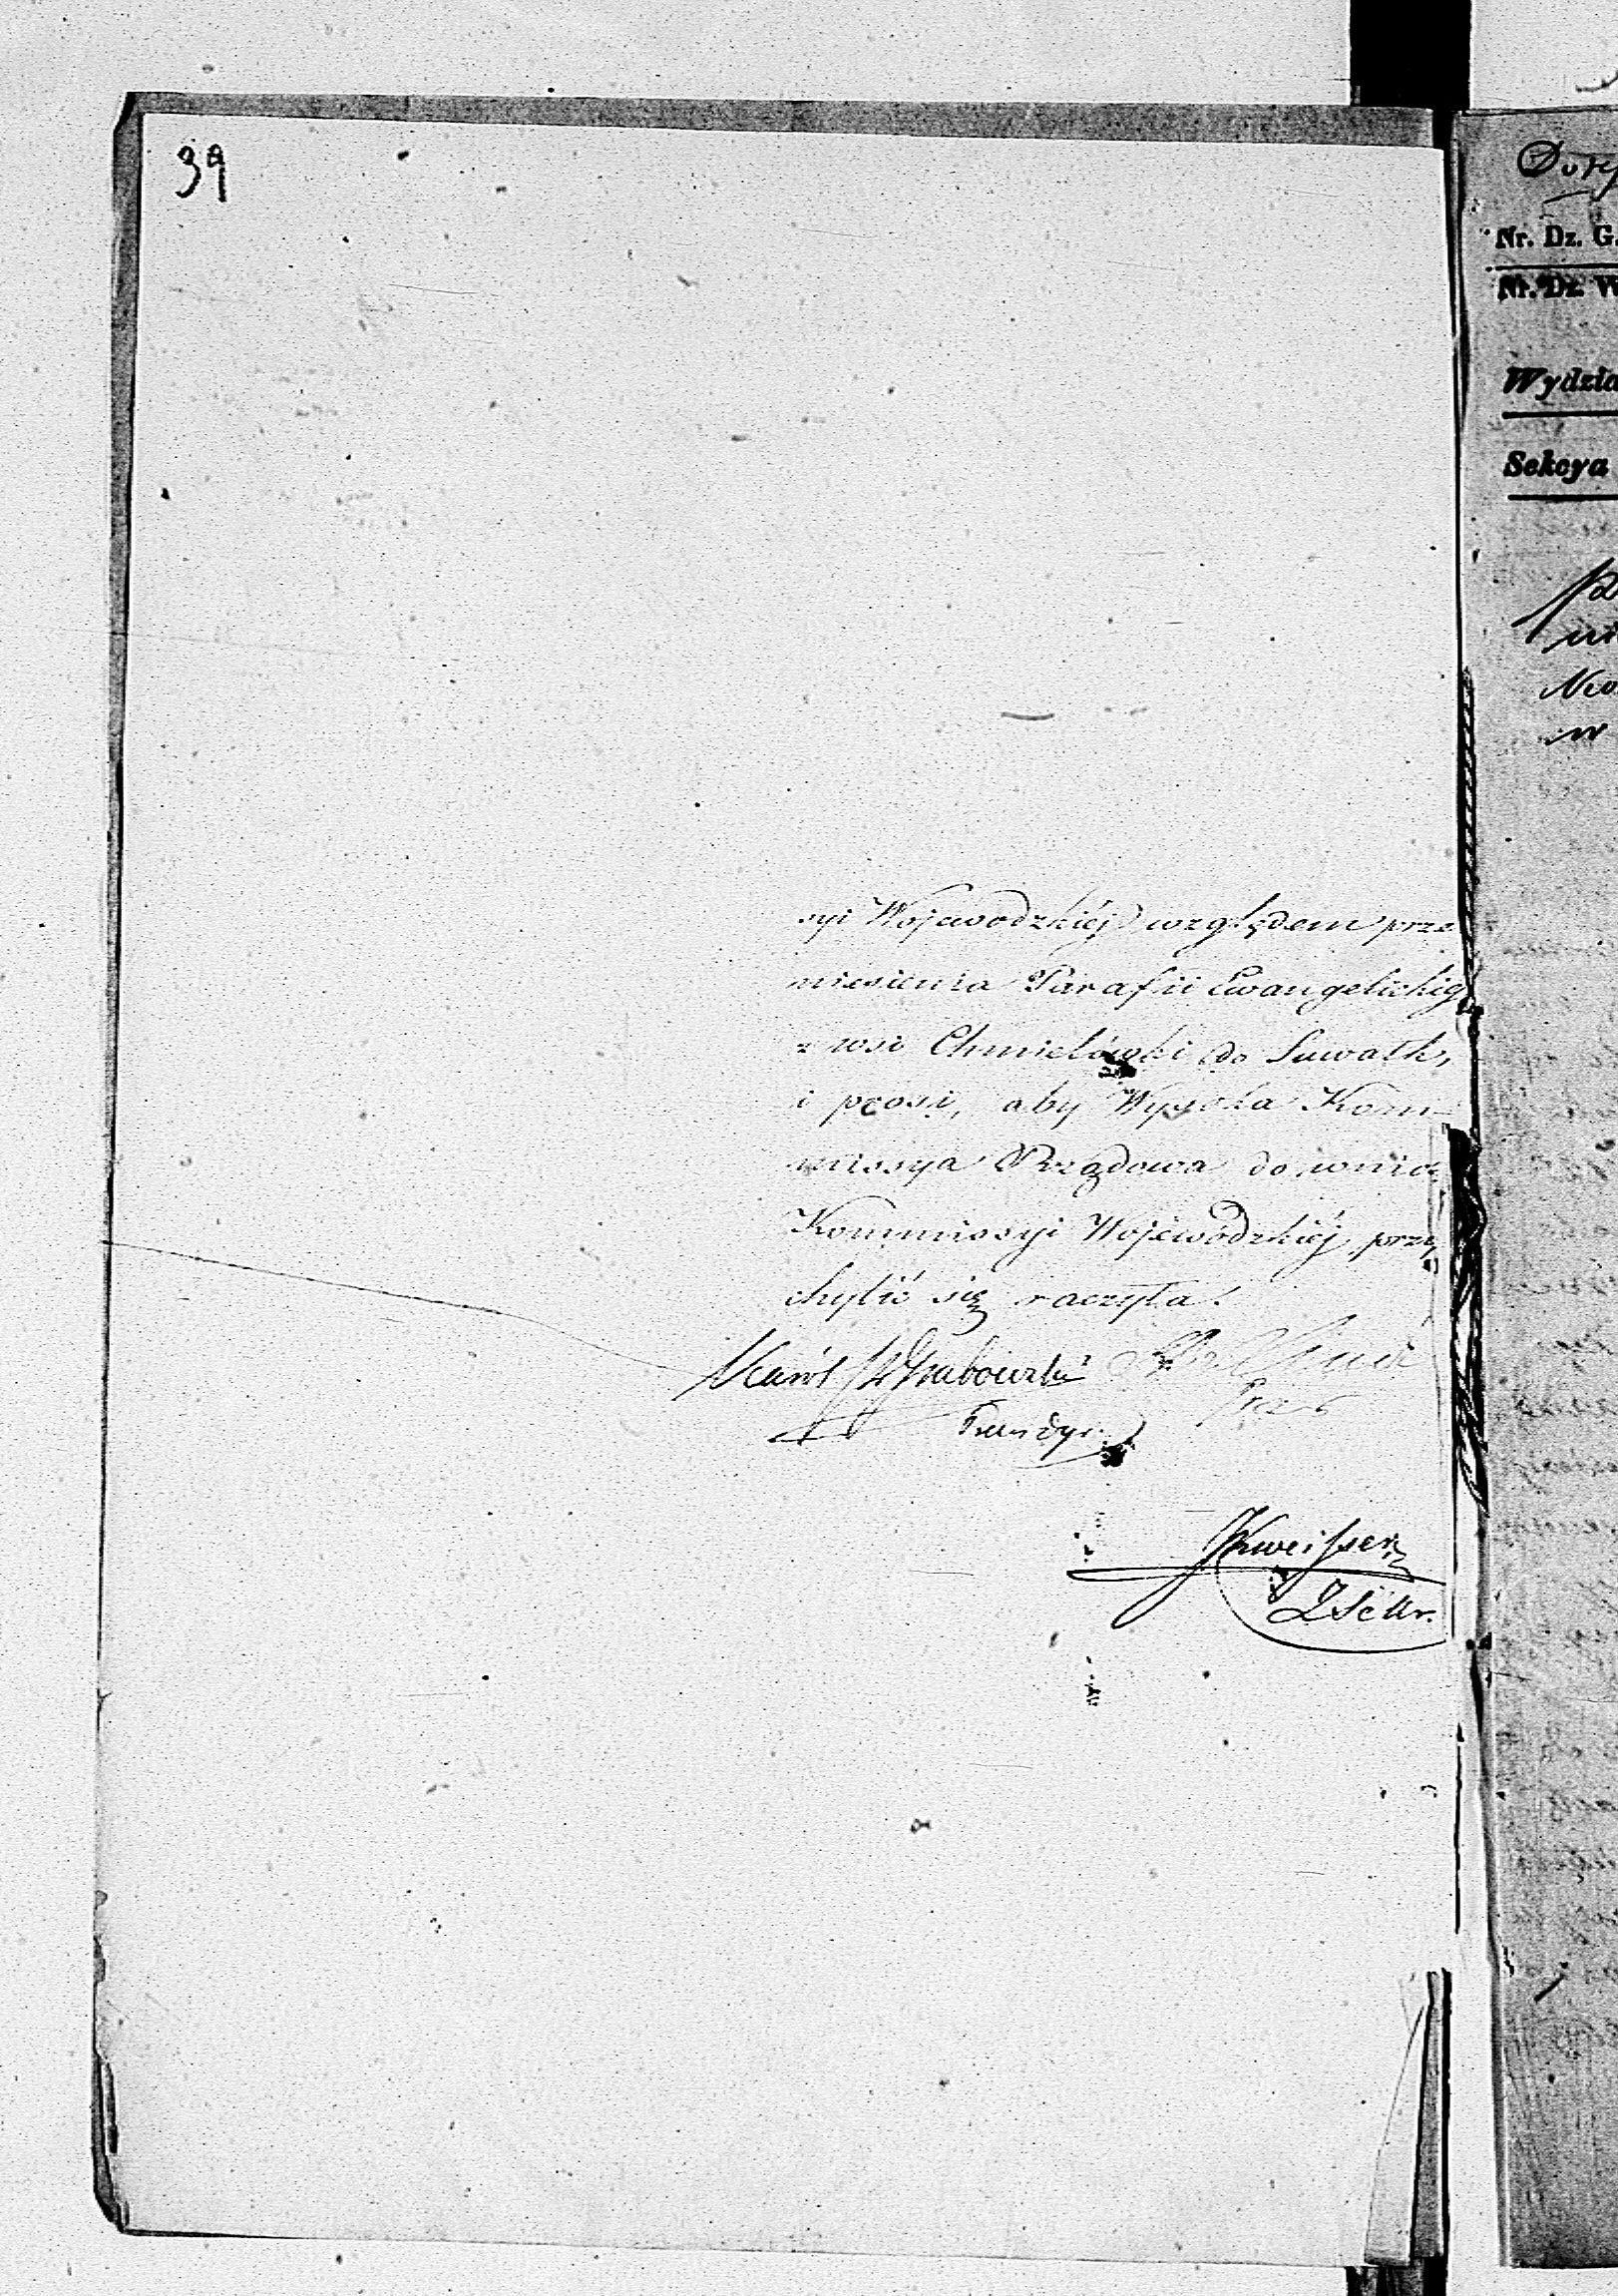 39
syi Wojewodzkiéj względem prze
niesienia Parafii Ewangelickiéj
z wsi Chmielówki do Suwałk,
i prosi, aby Wysoka Kom-
missya Rządowa do wnio
Kommissyi Wojewódzkiéj, przy
chylić się raczyła.
Karól Grabowski
Prez
Kweisser
Sekr.
Nr. Dz. G.
Nr. Dz. W
Wydzia
Sekcya